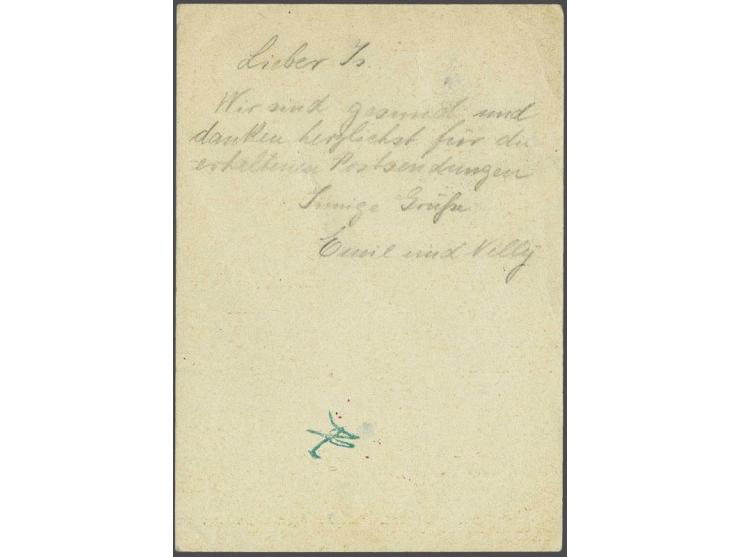 Lieber Is.
Wir sind gesund und
danken herzlichst für die
erhaltenen Postsendungen
Innige Grüße
Emil und Nelly